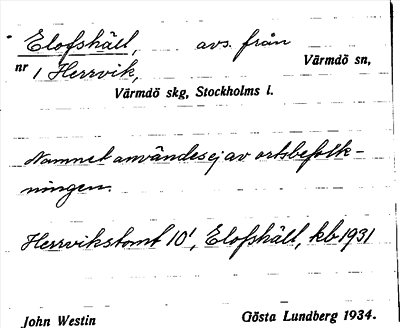 Elofshäll, avs. från
nr 1 Herrvik, Värmdö sn,
Värmdö skg, Stockholms l.
Namnet användes ej av ortsbefolk-
ningen.
Herrvikstomt 10¹, Elofshäll, kb 1931
John Westin Gösta Lundberg 1934.